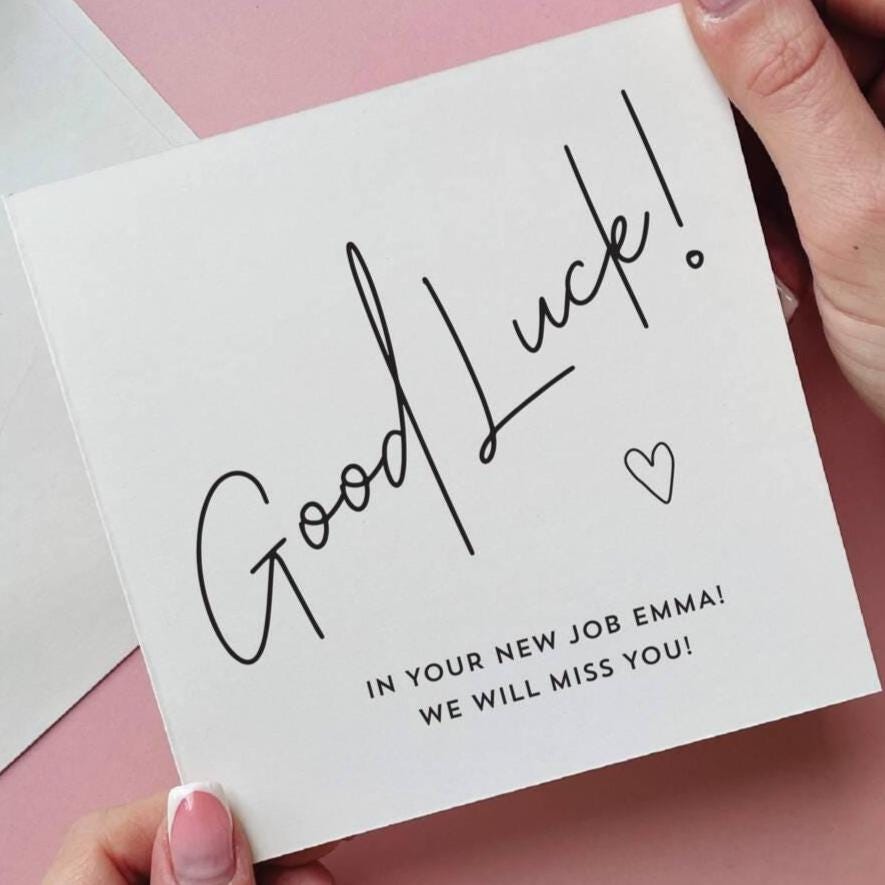 Good Luck!
IN YOUR NEW JOB EMMA!
WE WILL MISS YOU!